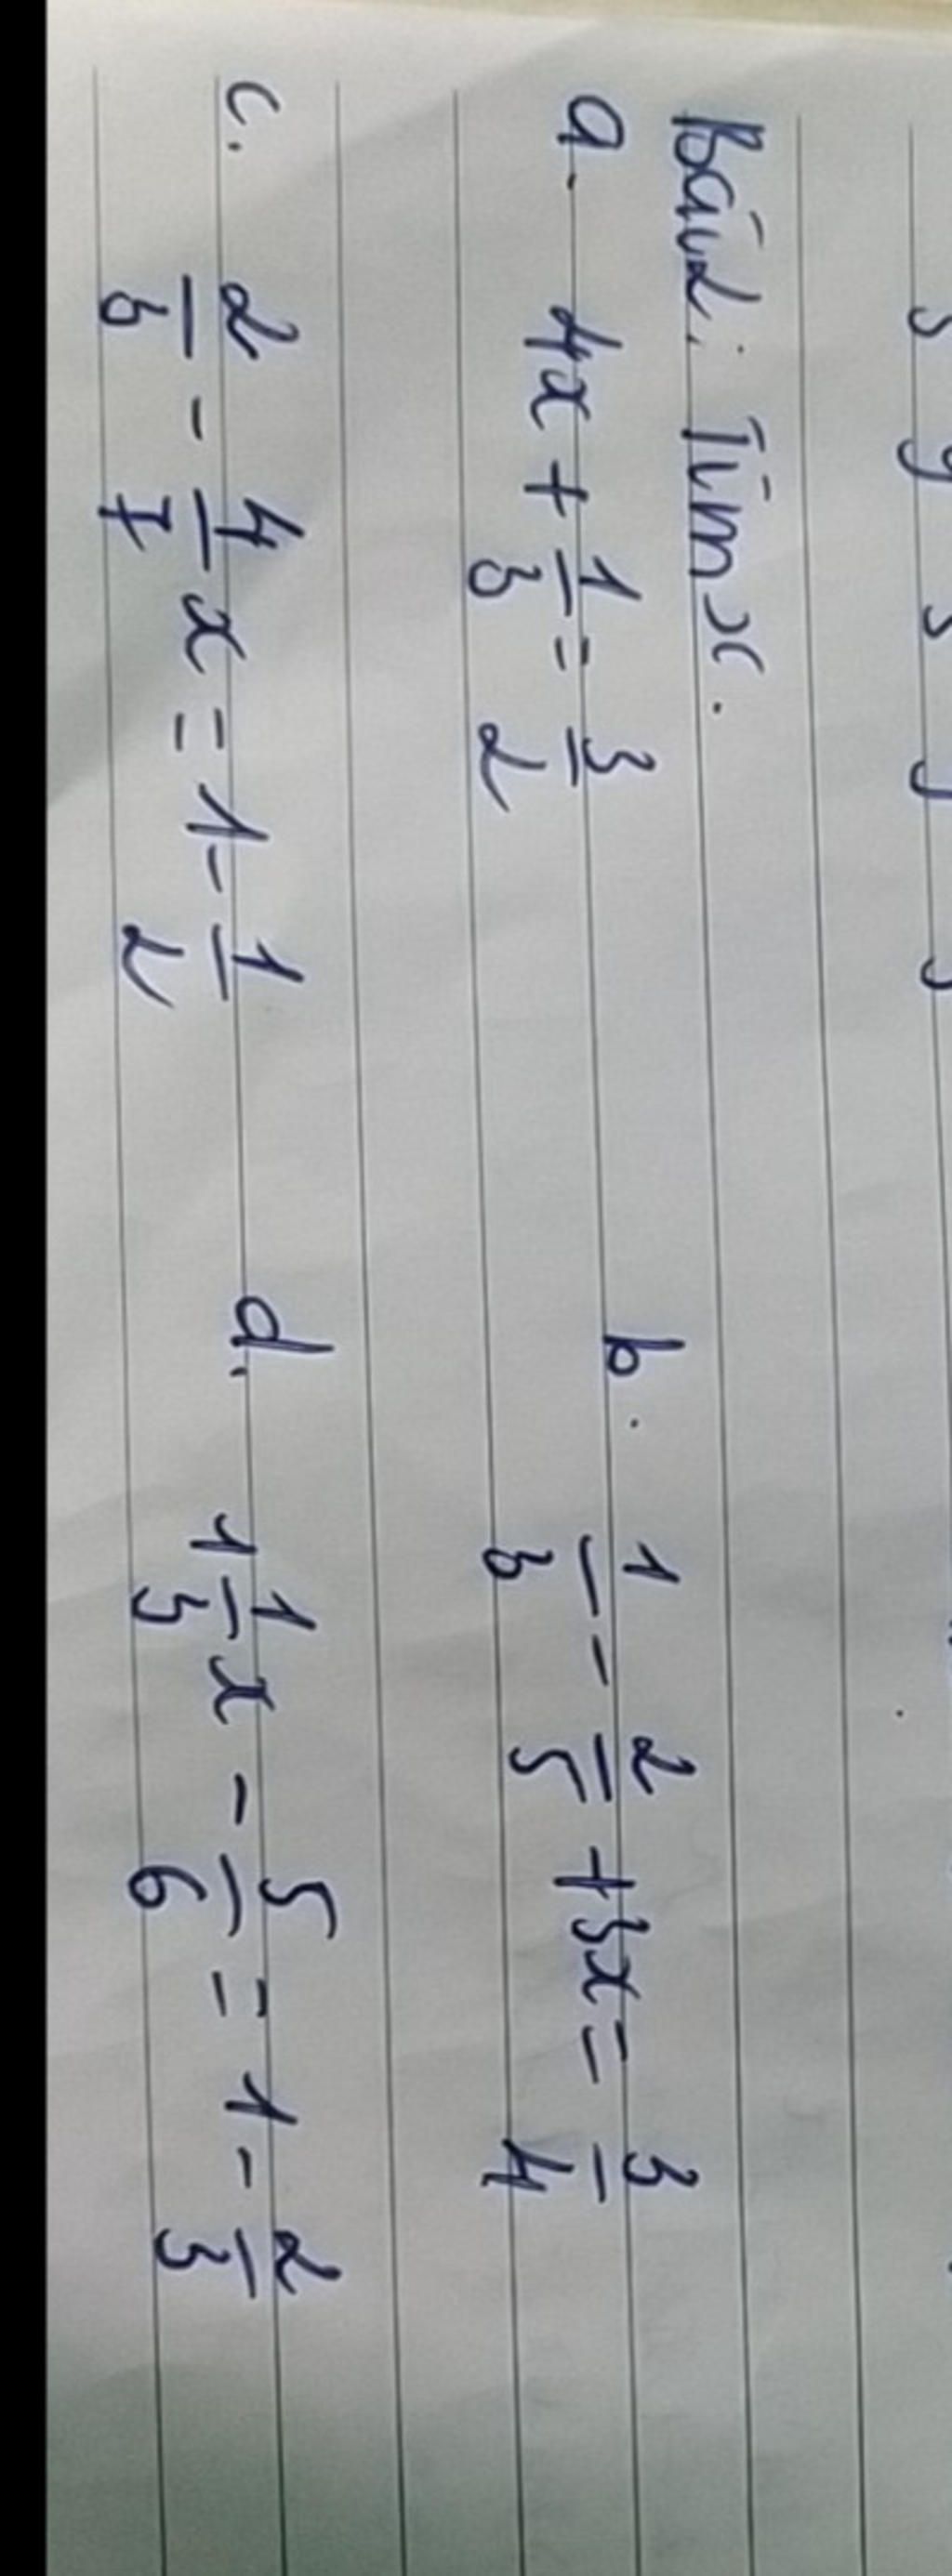 Bài 2: Tìm x.
a. 4x + 1/3 = 3/2 b. 1/3 - 2/5 + 3x = 3/4
c. 2/3 - 4/7 x = 1 - 1/2 d. 1 1/3 x - 5/6 = 1 - 2/3